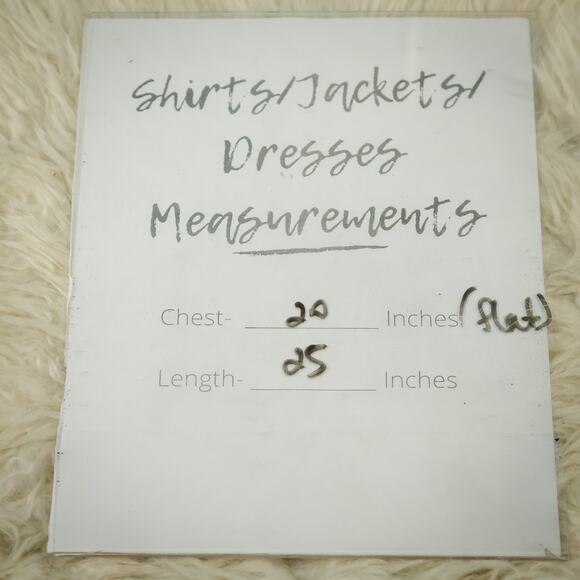 Shirts/Jackets/
Dresses
Measurements
Chest- 20 Inches (flat)
Length- 25 Inches